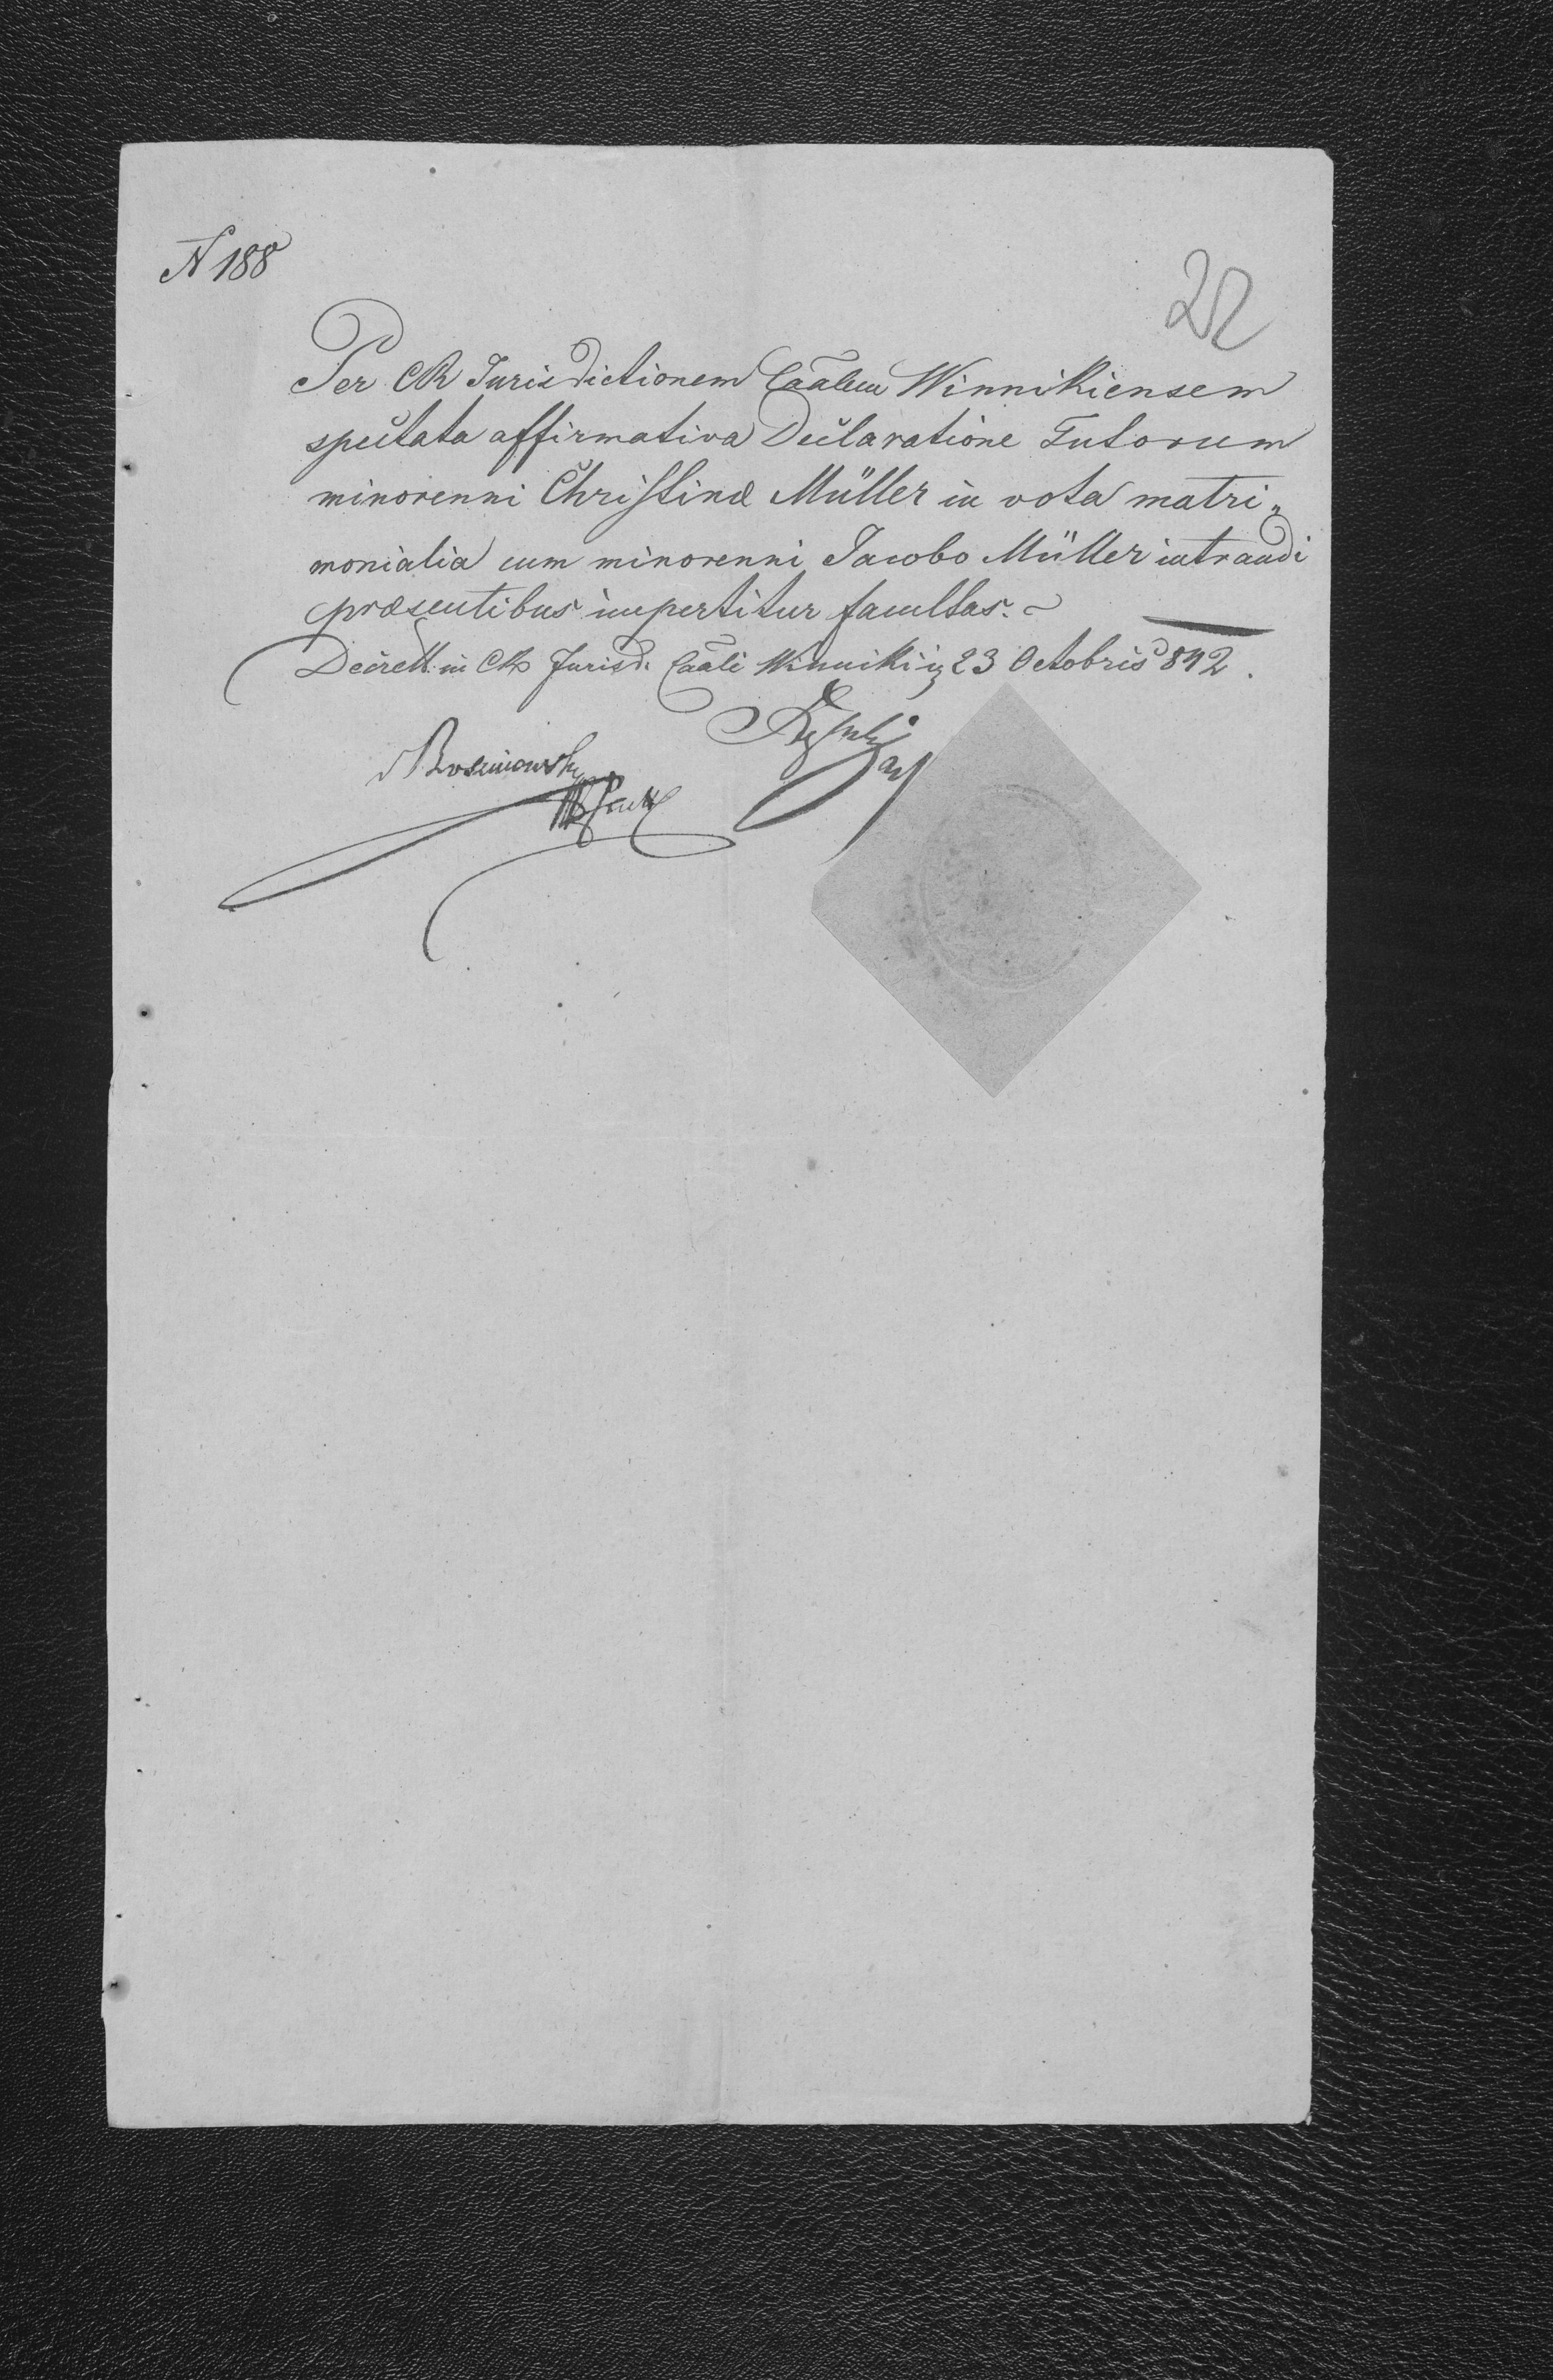 N 188
22
Per CR Jurisdictionem Caãlem Winnikiensem
spectata affirmativa Declaratione Tutorum
minorenni Christinæ Müller in vota matri„
monialia cum minorenni Jacobo Müller intrandi
præsentibus impertitur facultas.
Decrett. in CR Jurisd. Caãli Winniki 23 Octobris 842.